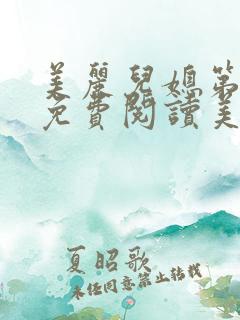 美麗兒媳第
免費閱讀美
夏昭歌
未经同意禁止转载